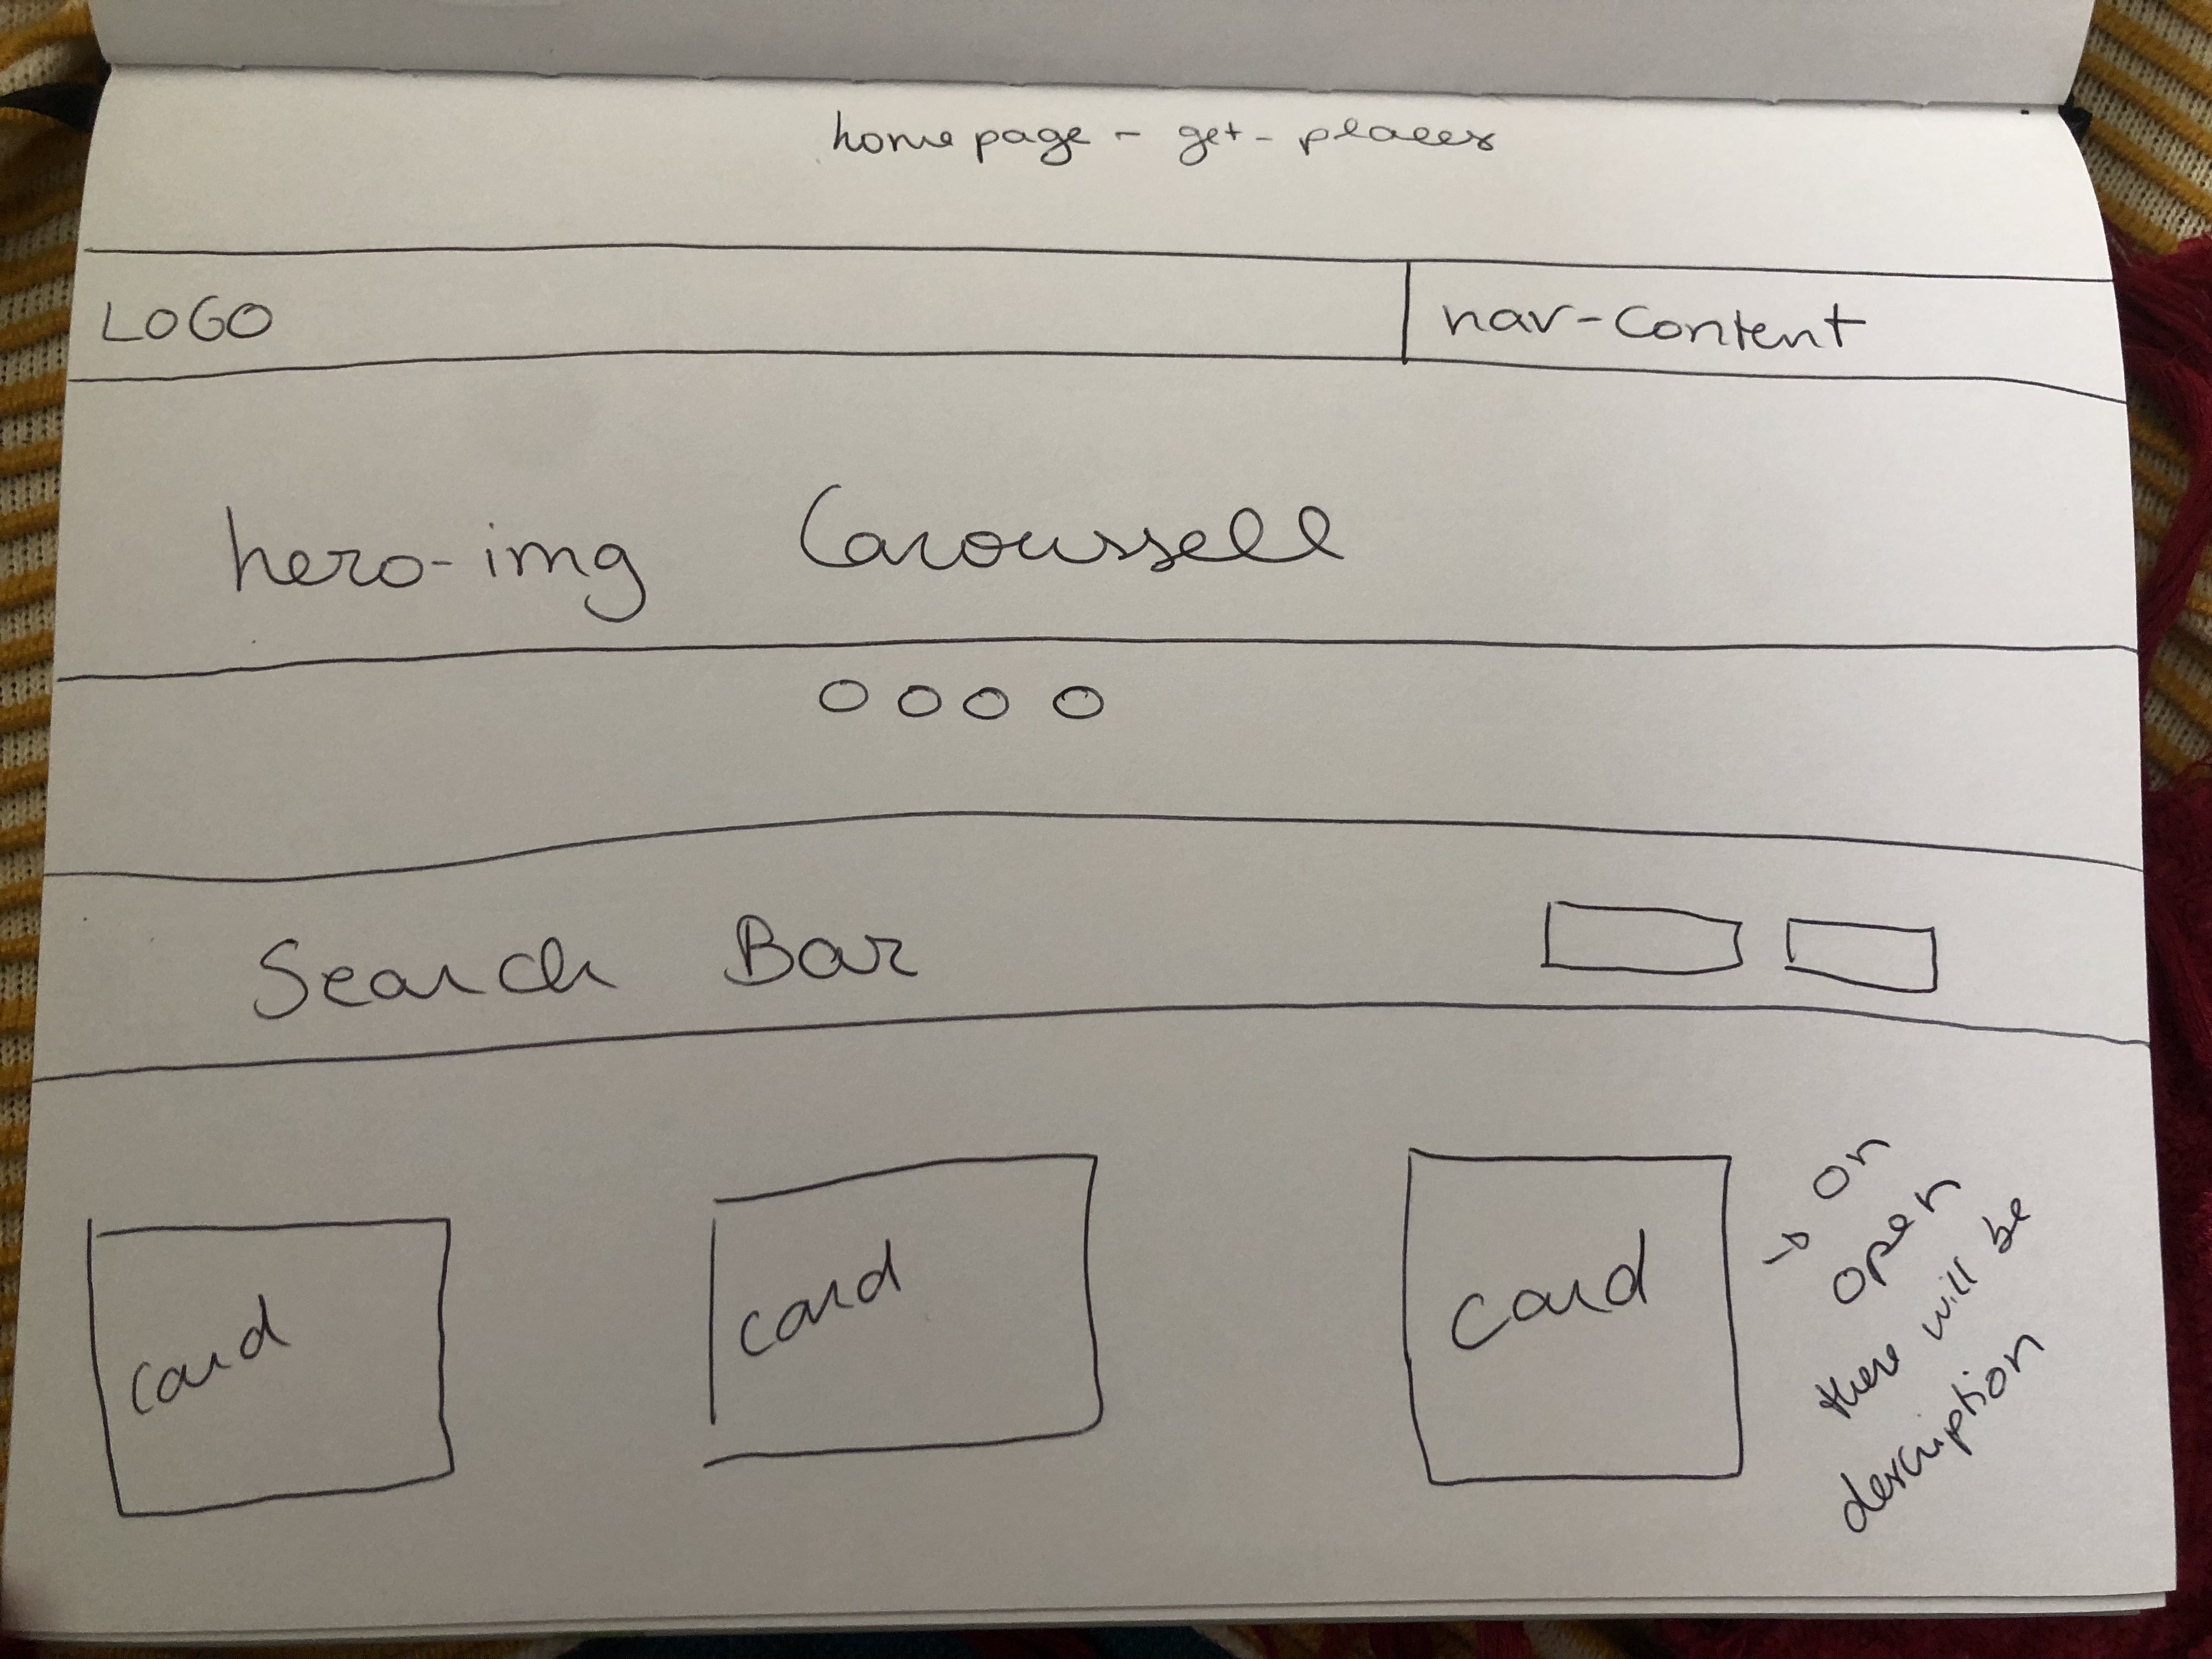 home page - get - places
LOGO
nav-content
hero-img Caroussell
Search Bar
card
card
card
→ on
open
there will be
description